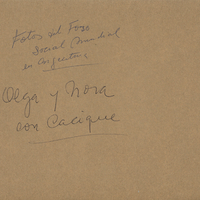 Fotos del Foro
Social Mundial
en Argentina
Olga y Nora
con Cacique